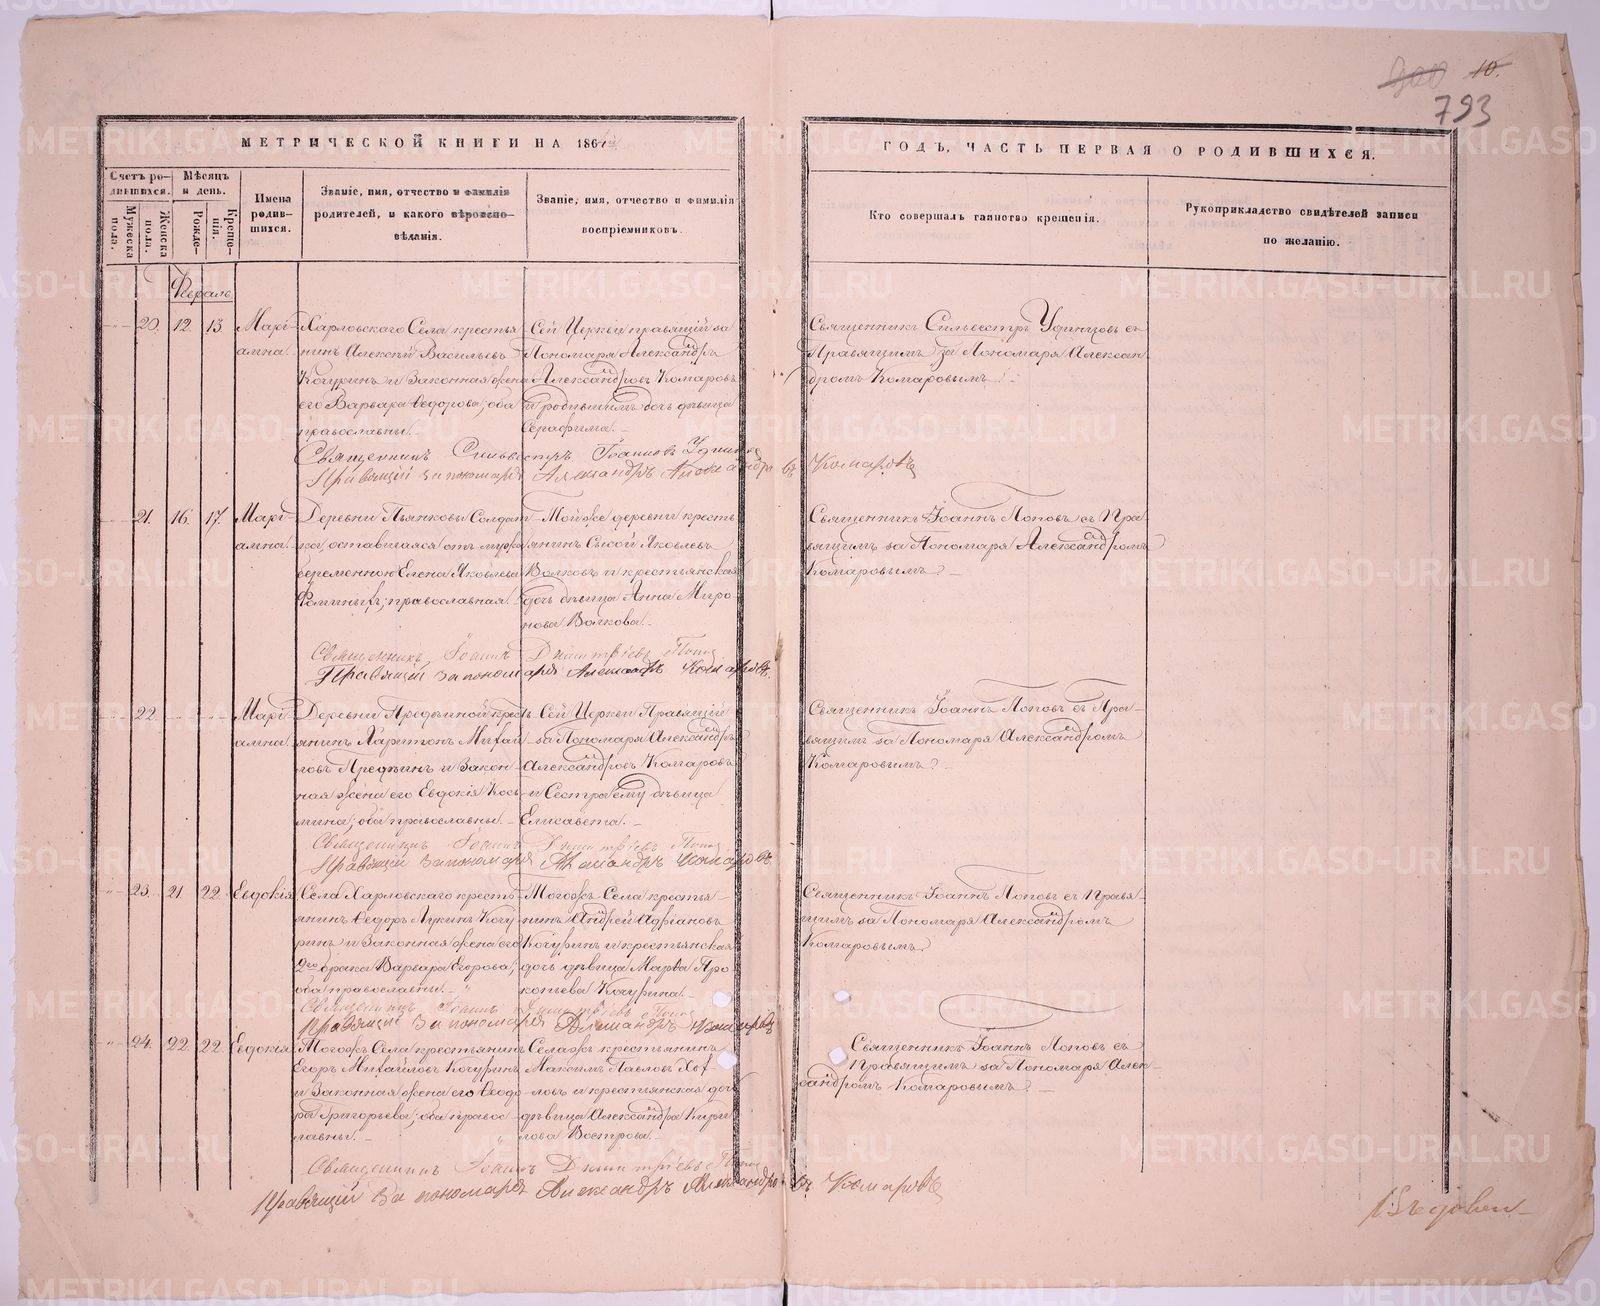 10.
793
МЕТРИЧЕСКОЙ КНИГИ НА 186
ГОДЪ, ЧАСТЬ ПЕРВАЯ О РОДИВШИХСЯ.
Счетъ ро-
дившихся.
Мужеска
пола.
Женска
пола.
Мѣсяцъ
и день.
Рожде-
Креще-
нія.
Имена
родив-
шихся.
Званіе, имя, отчество и фамилія
родителей, и какого вѣроиспо-
вѣданія.
Званіе, имя, отчество и фамилія
воспріемниковъ.
Кто совершалъ таинство крещенія.
Рукоприкладство свидѣтелей записи
по желанію.
Февраль
20. 12. 13
Марі-
амна.
Харловскаго Села крестья
нинъ Алексѣй Васильевъ
Кочуринъ и Законная жена
его Варвара Ѳедорова; оба
православны.
Сей Церкви правящій за
Пономаря Александръ
Александровъ Комаровъ
и родившимъ дочь дѣвица
Серафима.
Священникъ Сильвестръ Удинцовъ съ
Правящимъ за Пономаря Алексан
дромъ Комаровымъ.
Священникъ Сильвестръ Іоанновъ
Правящій за пономаря Александръ Александровъ Комаровъ
21. 16. 17.
Марі-
амна.
Деревни Пьянковы Солдат
ка, оставшаяся отъ мужа
беременною Елена Яковлева
Фоминыхъ; православная.
Той же деревни кресть
янинъ Сысой Яковлевъ
Волковъ и крестьянская
дочь дѣвица Анна Миро
нова Волкова.
Священникъ Іоаннъ Поповъ съ Пра
вящимъ за Пономаря Александромъ
Комаровымъ
Священникъ Іоаннъ Димитріевъ Попов
Правящій за пономаря Александръ Комаровъ.
22
Марі-
амна.
Деревни Предѣиной крест
янинъ Харитонъ Михай
ловъ Предѣинъ и Закон
ная жена его Евдокія Кось
мина; оба православны.
Сей Церкви Правящій
за Пономаря Александръ
Александровъ Комаровъ
и Сестра ему дѣвица
Елисавета.
Священникъ Іоаннъ Поповъ съ Пра-
вящимъ за Пономаря Александромъ
Комаровымъ
Священникъ Іоаннъ Димитріевъ Попов
Правящій за пономаря Александръ Комаровъ
23. 21. 22.
Евдокія
Села Харловскаго кресть
янинъ Ѳедоръ Лукинъ Кочу
ринъ и Законная жена его
2го брака Варвара Егорова;
оба православны.
Тогожъ Села крестья
нинъ Андрей Адріановъ
Кочуринъ и крестьянская
дочь дѣвица Марѳа Про
копьева Кочурина.
Священникъ Іоаннъ Поповъ съ Правя-
щимъ за Пономаря Александромъ
Комаровымъ
Священникъ Іоаннъ Димитріевъ Попов
Правящій за пономаря Александръ Комаровъ
24. 22. 22.
Евдокія
Тогожъ Села крестьянинъ
Егоръ Михайловъ Кочуринъ
и Законная жена его Ѳеодо
ра Григорьева; оба правос
лавны.
Селажъ крестьянинъ
Максимъ Павловъ
ловъ и крестьянская дочь
дѣвица Александра Кири
лова Вострова.
Священникъ Іоаннъ Поповъ съ
Правящимъ за Пономаря Алек-
сандромъ Комаровымъ
Священникъ Іоаннъ Димитріевъ Попов
Правящій за пономаря Александръ Александровъ Комаровъ